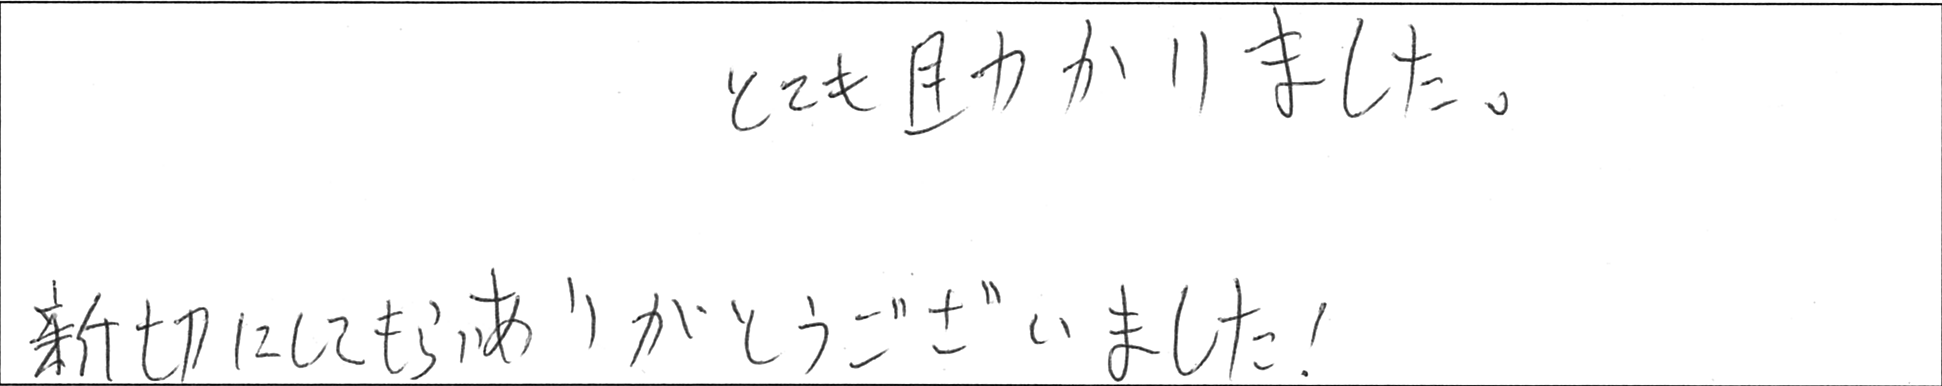 とても助かりました。
新切にしてもらいありがとうございました!